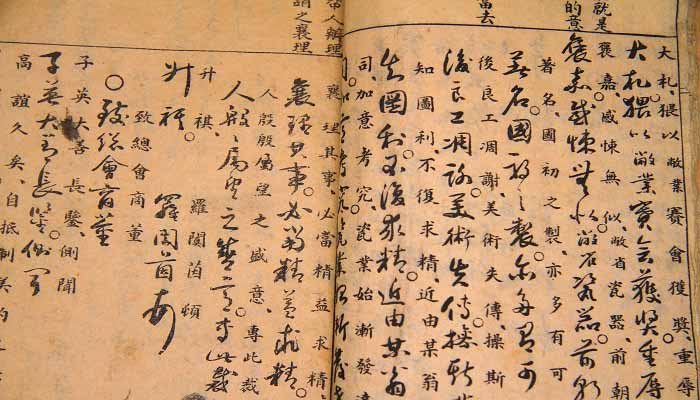 就是
的意
當去
大札。猥以敝業賽會獲獎。重辱
大札。猥以敝業賽會獲獎。重辱
褒嘉。感悚無似。敝省瓷器。前朝
褒嘉。感悚無似。敝省瓷器。前朝
著名。國初之製。亦多有可
著名。國初之製。亦多有可
後良工凋謝。美術失傳。操斯
後良工凋謝。美術失傳。操斯
知圖利。不復求精。近由某翁
知圖利。不復求精。近由某翁
司。加意考究。瓷業始漸發達
人辦理
謂之襄理
襄理其事。必當精益求精
襄理其事。必當精益求精
人殷殷屬望之盛意。專此裁
人殷殷屬望之盛意。專此裁
升祺。羅闓茵頓
升祺。羅闓茵頓
致總會商董
○致總會商董
子英大善長鑒。側聞
子英大善長鑒。側聞
高誼久矣。自抵制美約